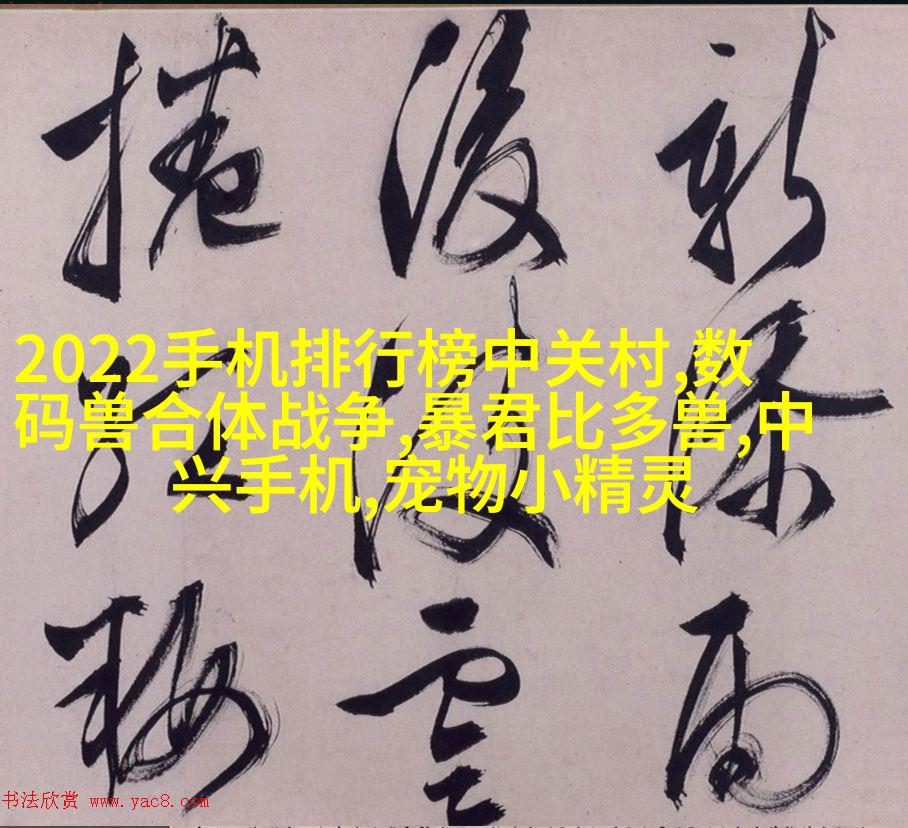 新 雨
雲
捲 梅
2022手机排行榜中关村,数
码兽合体战争,暴君比多兽,中
兴手机,宠物小精灵
书法欣赏 www.yac8.com